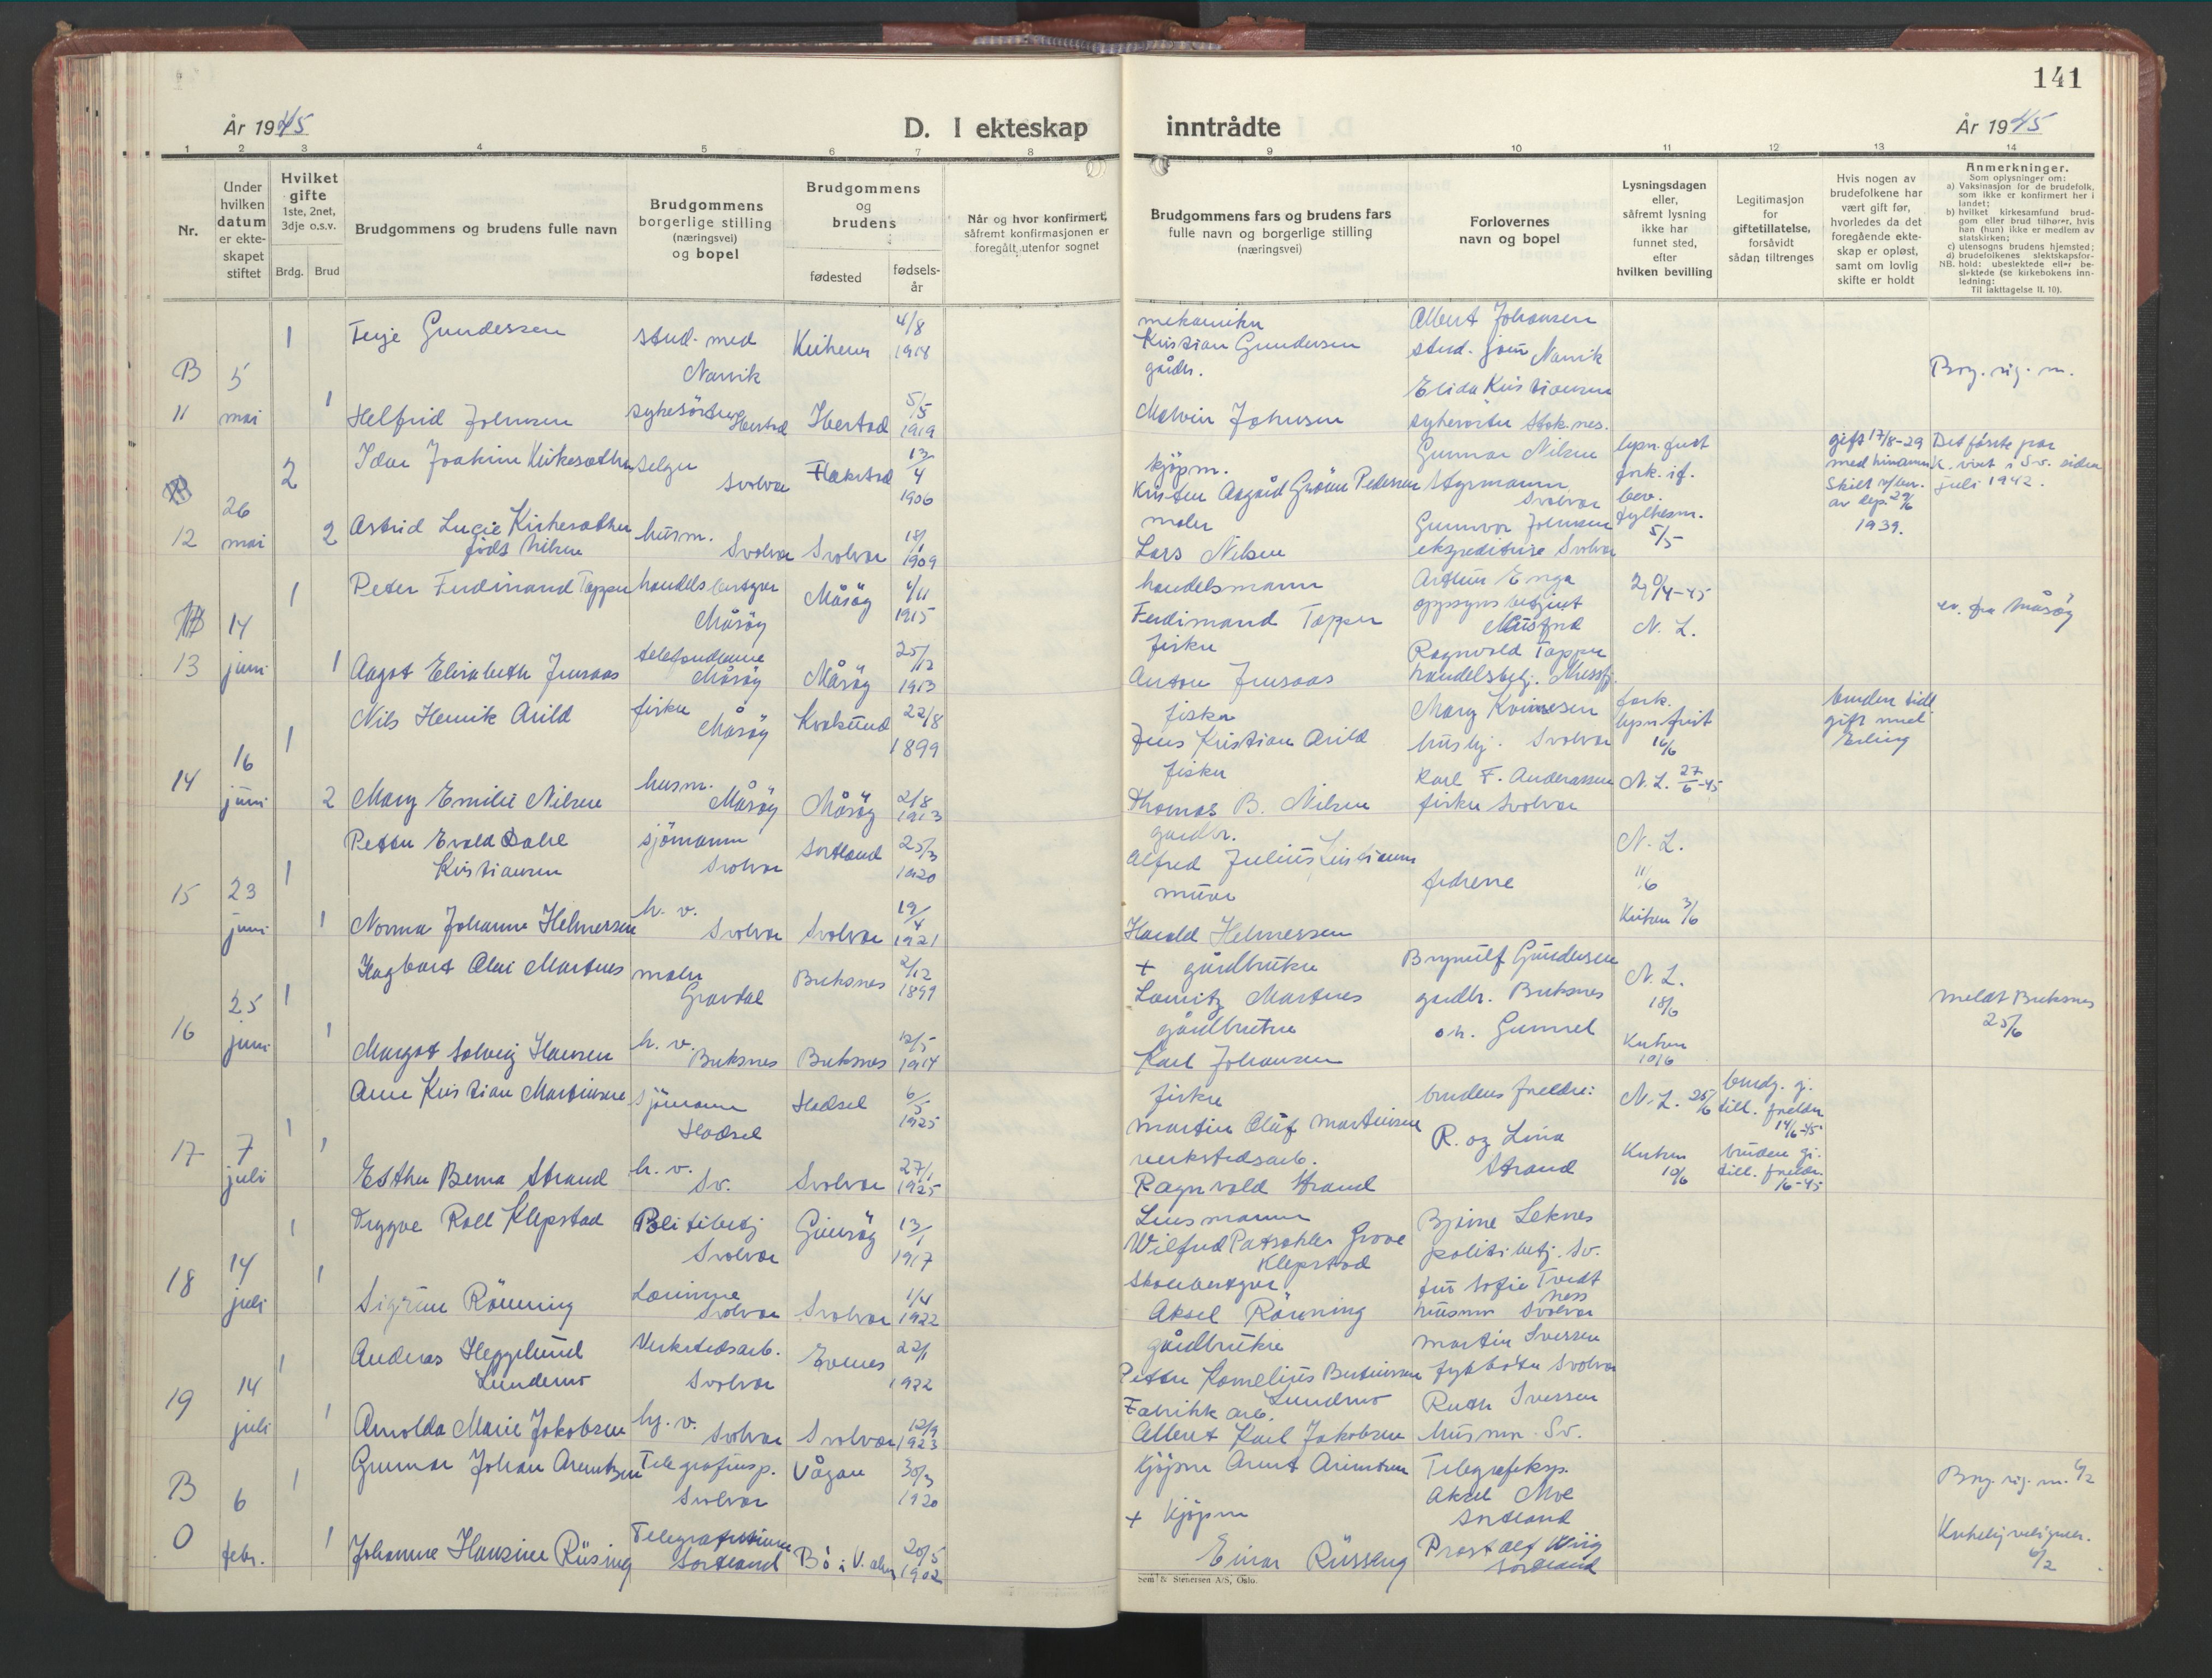 141
År 1945
D. I ekteskap inntrådte
År 1945
1 2 3 4 5 6 7 8 9 10 11 12 13 14
Nr.
Under
hvilken
datum
er ekte-
skapet
stiftet
Hvilket
gifte
1ste, 2net,
3dje o.s.v.
Brdg. Brud
Brudgommens og brudens fulle navn
Brudgommens
borgerlige stilling
(næringsvei)
og bopel
Brudgommens
og
brudens
fødested
fødsels-
år
Når og hvor konfirmert,
såfremt konfirmasjonen er
foregått utenfor sognet
Brudgommens fars og brudens fars
fulle navn og borgerlige stilling
(næringsvei)
Forlovernes
navn og bopel
Lysningsdagen
eller,
såfremt lysning
ikke har
funnet sted,
efter
hvilken bevilling
Legitimasjon
for
giftetillatelse,
forsåvidt
sådan tiltrenges
Hvis nogen av
brudefolkene har
vært gift før,
hvorledes da det
foregående ekte-
skap er opløst,
samt om lovlig
skifte er holdt
Anmerkninger.
Som oplysninger om:
a) Vaksinasjon for de brudefolk,
som ikke er konfirmert her i
landet;
b) hvilket kirkesamfund brud-
gom eller brud tilhører, hvis
han (hun) ikke er medlem av
statskirken;
c) utensogns brudens hjemsted;
d) brudefolkenes slektskapsfor-
NB. hold: ubeslektede eller be-
slektede (se kirkebokens inn-
ledning:
Til iakttagelse II, 10).
B 11
5 mai
1
Terje Gundersen
stud. med
Narvik
4/8
1918
mekaniker
Kristian Gundersen
Albert Johansen
stud. Narvik
Borg. vig. m.
1
Helfrid Johnsen
sykesöster Ibestad
Ibestad
5/5
1919
gårdbr.
Malvin Johnsen
Elida Kristiansen
sykesöster Stokmes.
12
26 mai
2
Idar Joakim Kirkesæther
selger
Svolvær
Flakstad
13/4
1906
kjöpm.
Kristen Aagård Grönn Pedersen
Gunnar Nilsen
Styrmann
Svolvær
lysn. frist
fork. if.
bev.
fylkesm.
5/5
gift 17/8-29
Skilt v/bev.
1939.
Det förste par
juli 1942.
2
Astrid Lucie Kirkesæther
föds Nilsen
husm.
Svolvær
Svolvær
1909
maler
Lars Nilsen
Gunnvor Johnsen
ekspeditrise Svolvær
13
14 juni
1
Peter Ferdinand Tapper
handelsbestyrer
Måsöy
Måsöy
4/11
1915
handelsmann
Ferdinand Tapper
Arthur Enga
oppsynsbetjent
N. L.
ev. fra Måsöy
1
Aagot Elisabeth Jensaas
telefondame
Måsöy
Måsöy
25/12
1913
fisker
Anton Jensaas
Ragnvald Tapper
handelsbetj.
14
16 juni
1
Nils Henrik Arild
fisker
Måsöy
22/8
1899
fisker
Jens Kristian Arild
Mary
Svolvær
fork.
lysn. frist
16/6
bruden tidl.
gift med
Erling
2
Mary Emilie Nilsen
husm.
Måsöy
Måsöy
2/8
1913
fisker
Thomas B. Nilsen
Karl F. Anderassen
fisker Svolvær
N. L. 27/6-45
15
23 juni
1
Petter Evald Dahl
Kristiansen
sjömann
Svolvær
Sortland
25/3
1920
gårdbr.
Alfred Julius Kristiansen
fedrene
N. L.
11/6
1
Norma Johanne Helmersen
h. v.
Svolvær
Svolvær
19/4
1921
murer
Harald Helmersen
3/6
16
25 juni
1
Hagbart Olai Martnes
maler
Gravdal
Buksnes
2/12
1899
+ gårdbruker
Lauritz Martnes
Brynulf Gundersen
gardbr. Buksnes
og Gunnel
N. L.
18/6
meldt Buksnes
25/6
1
Margot Solveig Hansen
h. v.
Buksnes
Buksnes
12/5
1914
gårdbruker
Karl Johansen
10/6
17
7 juli
1
Arne Kristian Martinsen
sjömann
Hadsel
Hadsel
6/5
1925
fisker
Martin Oluf Martinsen
brudens foreldre:
R. og Lina
Strand
N. L. 25/6
brudg. gj.
till. foreldre
14/6-45
1
Esther Berna Strand
h. v.
Sv.
Svolvær
27/1
1925
verkstedsarb.
Ragnvald Strand
10/6
bruden gj.
till. foreldre
18
14 juli
1
Trygve Roll Klepstad
Politibetj
Svolvær
Gimsöy
13/1
1917
Lensmann
Wilfred Grove
Klepstad
Bjarne Leknes
politibetj. Sv.
1
Sigrun Rönning
Lærerinne
Svolvær
Svolvær
1/4
1922
Skolebestyrer
Aksel Rönning
fru Sofie Tvedt
Ness
husmor Svolvær
19
14 juli
1
Anderas Hegglund
Lundemo
Verkstedsarb.
Svolvær
Evenes
22/1
1922
gårdbruker
Petter Kornelius Berteusen
Lundemo
Martin Iversen
fyrböter Svolvær
1
Arnolda Marie Jakobsen
hj. v.
Svolvær
Svolvær
12/9
1923
Fabrikk arb.
Albert Karl Jakobsen
Ruth Iversen
husmor Sv.
B 0
6 febr.
1
Gunnar Johan Arentsen
Telegrafeksp.
Svolvær
Vågan
30/3
1920
Kjöpm Arent Arentsen
Telegrafeksp.
Aksel Moe
Sortland
Borg. vig. m. 6/2
1
Johanne Hansine Rüsing
Telegrafistinne
Sortland
Bö i V. ålen
20/5
1902
+ Kjöpm
Einar
Prost Alf Wiig
Sortland
6/2
Sem & Stenersen A/S, Oslo.